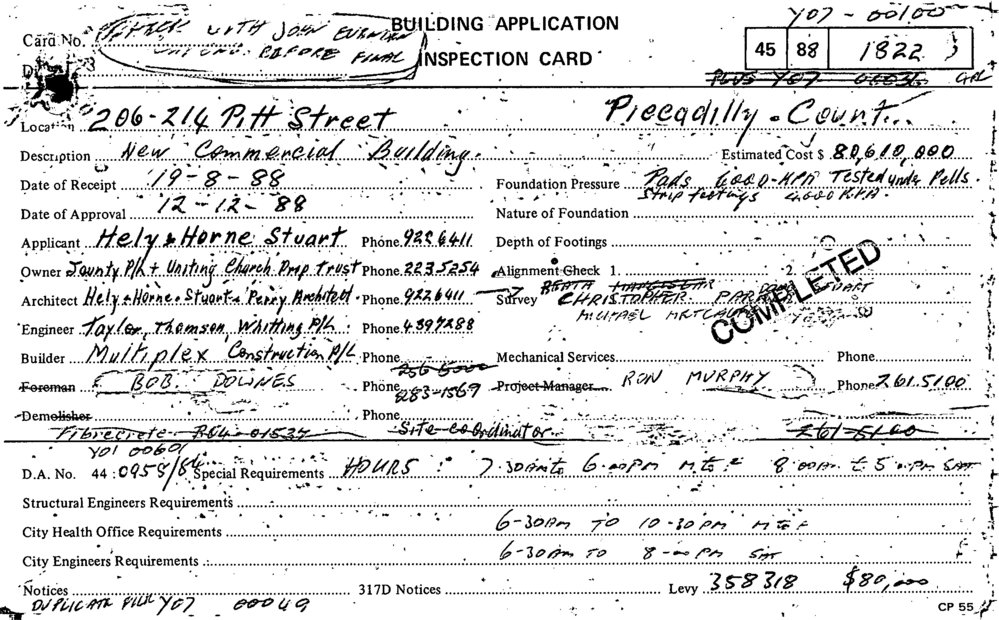 Y07 - 00100
BUILDING APPLICATION
Card No. WITH JOHN
BEFORE FINAL
INSPECTION CARD
45 88 1822
PLUS Y07
Location 206-214 Pitt Street Piccadilly Court
Description New Commercial Building. Estimated Cost $ 80,610,000
Date of Receipt 19-8-88 Foundation Pressure Pads 6000-KPA Tested under Pells.
Strip footings 4000 KPA.
Date of Approval 12-12-88 Nature of Foundation
Applicant Hely & Horne Stuart Phone 922 6411 Depth of Footings
Owner County P/L + Uniting Church Prop Trust Phone 223.5254 Alignment Check 1. 2.
Architect Hely, Horne, Stuart & Perry Architect Phone 922 6411 Survey CHRISTOPHER
MICHAEL
COMPLETED
Engineer Taylor, Thomson, Whitting P/L Phone 4397288
Builder Multiplex Construction P/L Phone Mechanical Services Phone
Foreman BOB DOWNES Phone 283-1569 Project Manager RON MURPHY Phone 261.5100
Demolisher Phone
Fibrecrete R84-01537 Site Co-Ordinator 261-5100
Y01 0060
D.A. No. 44: 0958/86 Special Requirements HOURS : 7.30am to 6.00pm M to F 8.00am to 5.00pm SAT
Structural Engineers Requirements
City Health Office Requirements 6-30am TO 10-30pm M to F
City Engineers Requirements 6-30am TO 8-00pm SAT
Notices 317D Notices Levy 358318 $80,000
DUPLICATE FILE Y07 00049
CP 55